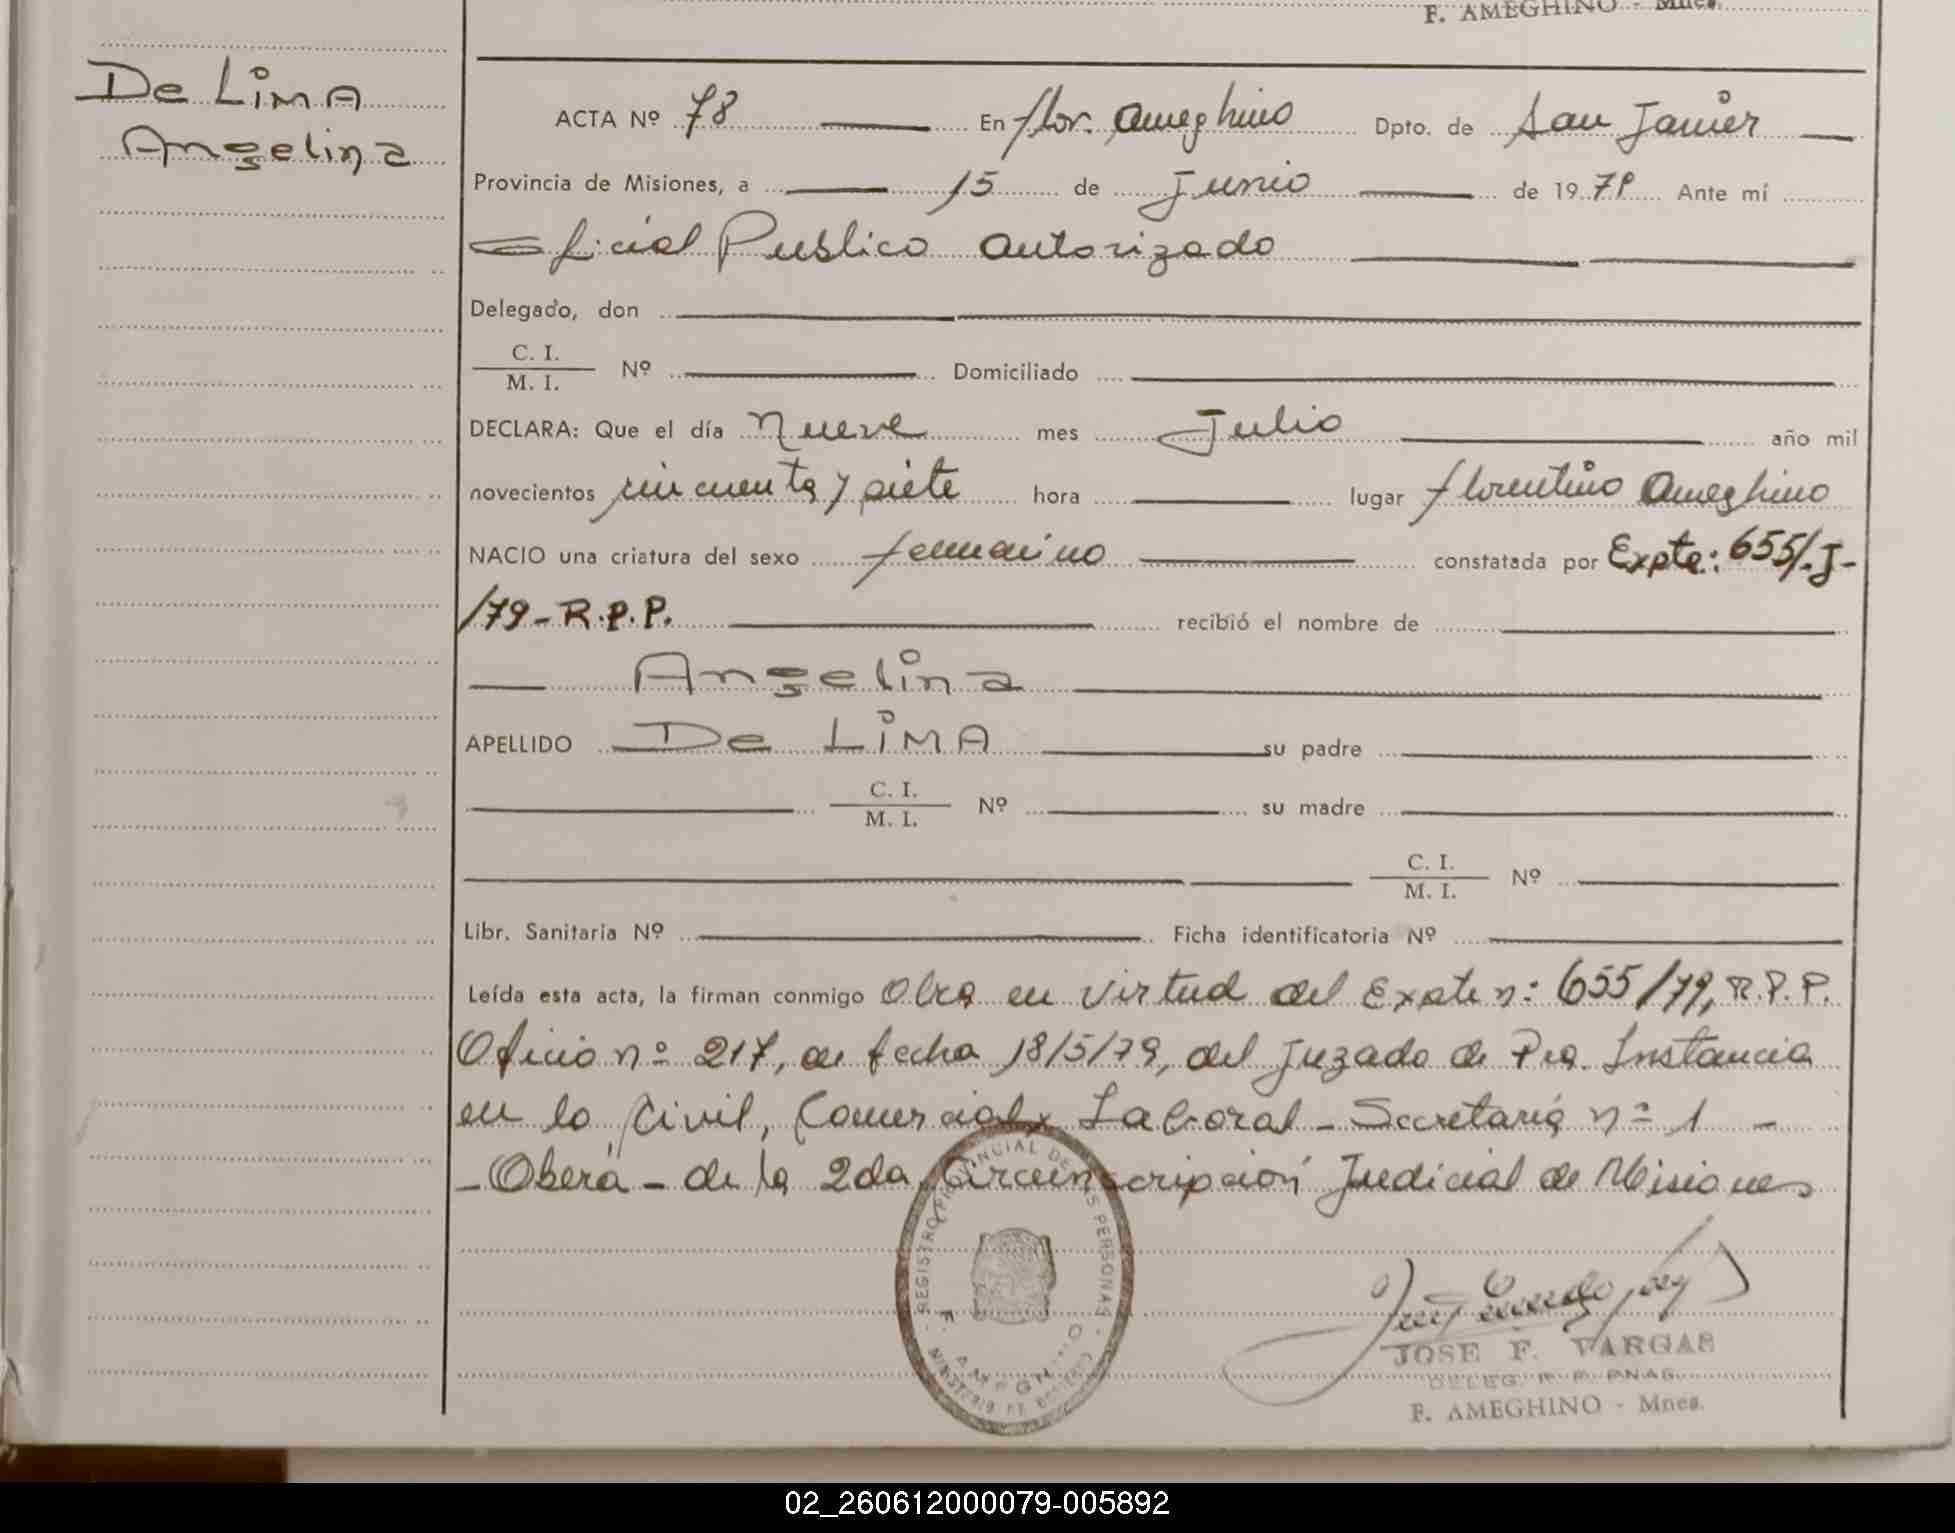 F. AMEGHINO - Mnes.
De LiMA
Angelina
ACTA Nº 78 En flor. Ameghino Dpto. de San Javier
Provincia de Misiones, a 15 de Junio de 1979 Ante mí
Oficial Publico autorizado
Delegado, don
C. I.
M. I. Nº Domiciliado
DECLARA: Que el día nueve mes Julio año mil
novecientos cincuenta y siete hora lugar florentino Ameghino
NACIO una criatura del sexo femenino constatada por Expte: 655/-J-
/79-R.P.P. recibió el nombre de
Angelina
APELLIDO De LiMA su padre
C. I.
M. I. Nº su madre
C. I.
M. I. Nº
Libr. Sanitaria Nº Ficha identificatoria Nº
Leída esta acta, la firman conmigo Obra en virtud del Expte n: 655/79, R.P.P.
Oficio nº 217, de fecha 18/5/79, del Juzado de Pra. Instancia
en lo Civil, Comercial y Laboral - Secretaría nº 1 -
- Oberá - de la 2da Circunscripción Judicial de Misiones
REGISTRO PROVINCIAL DE LAS PERSONAS
MINISTERIO DE GOBIERNO
F. AMEGHINO
JOSE F. VARGAS
F. AMEGHINO - Mnes.
02_260612000079-005892